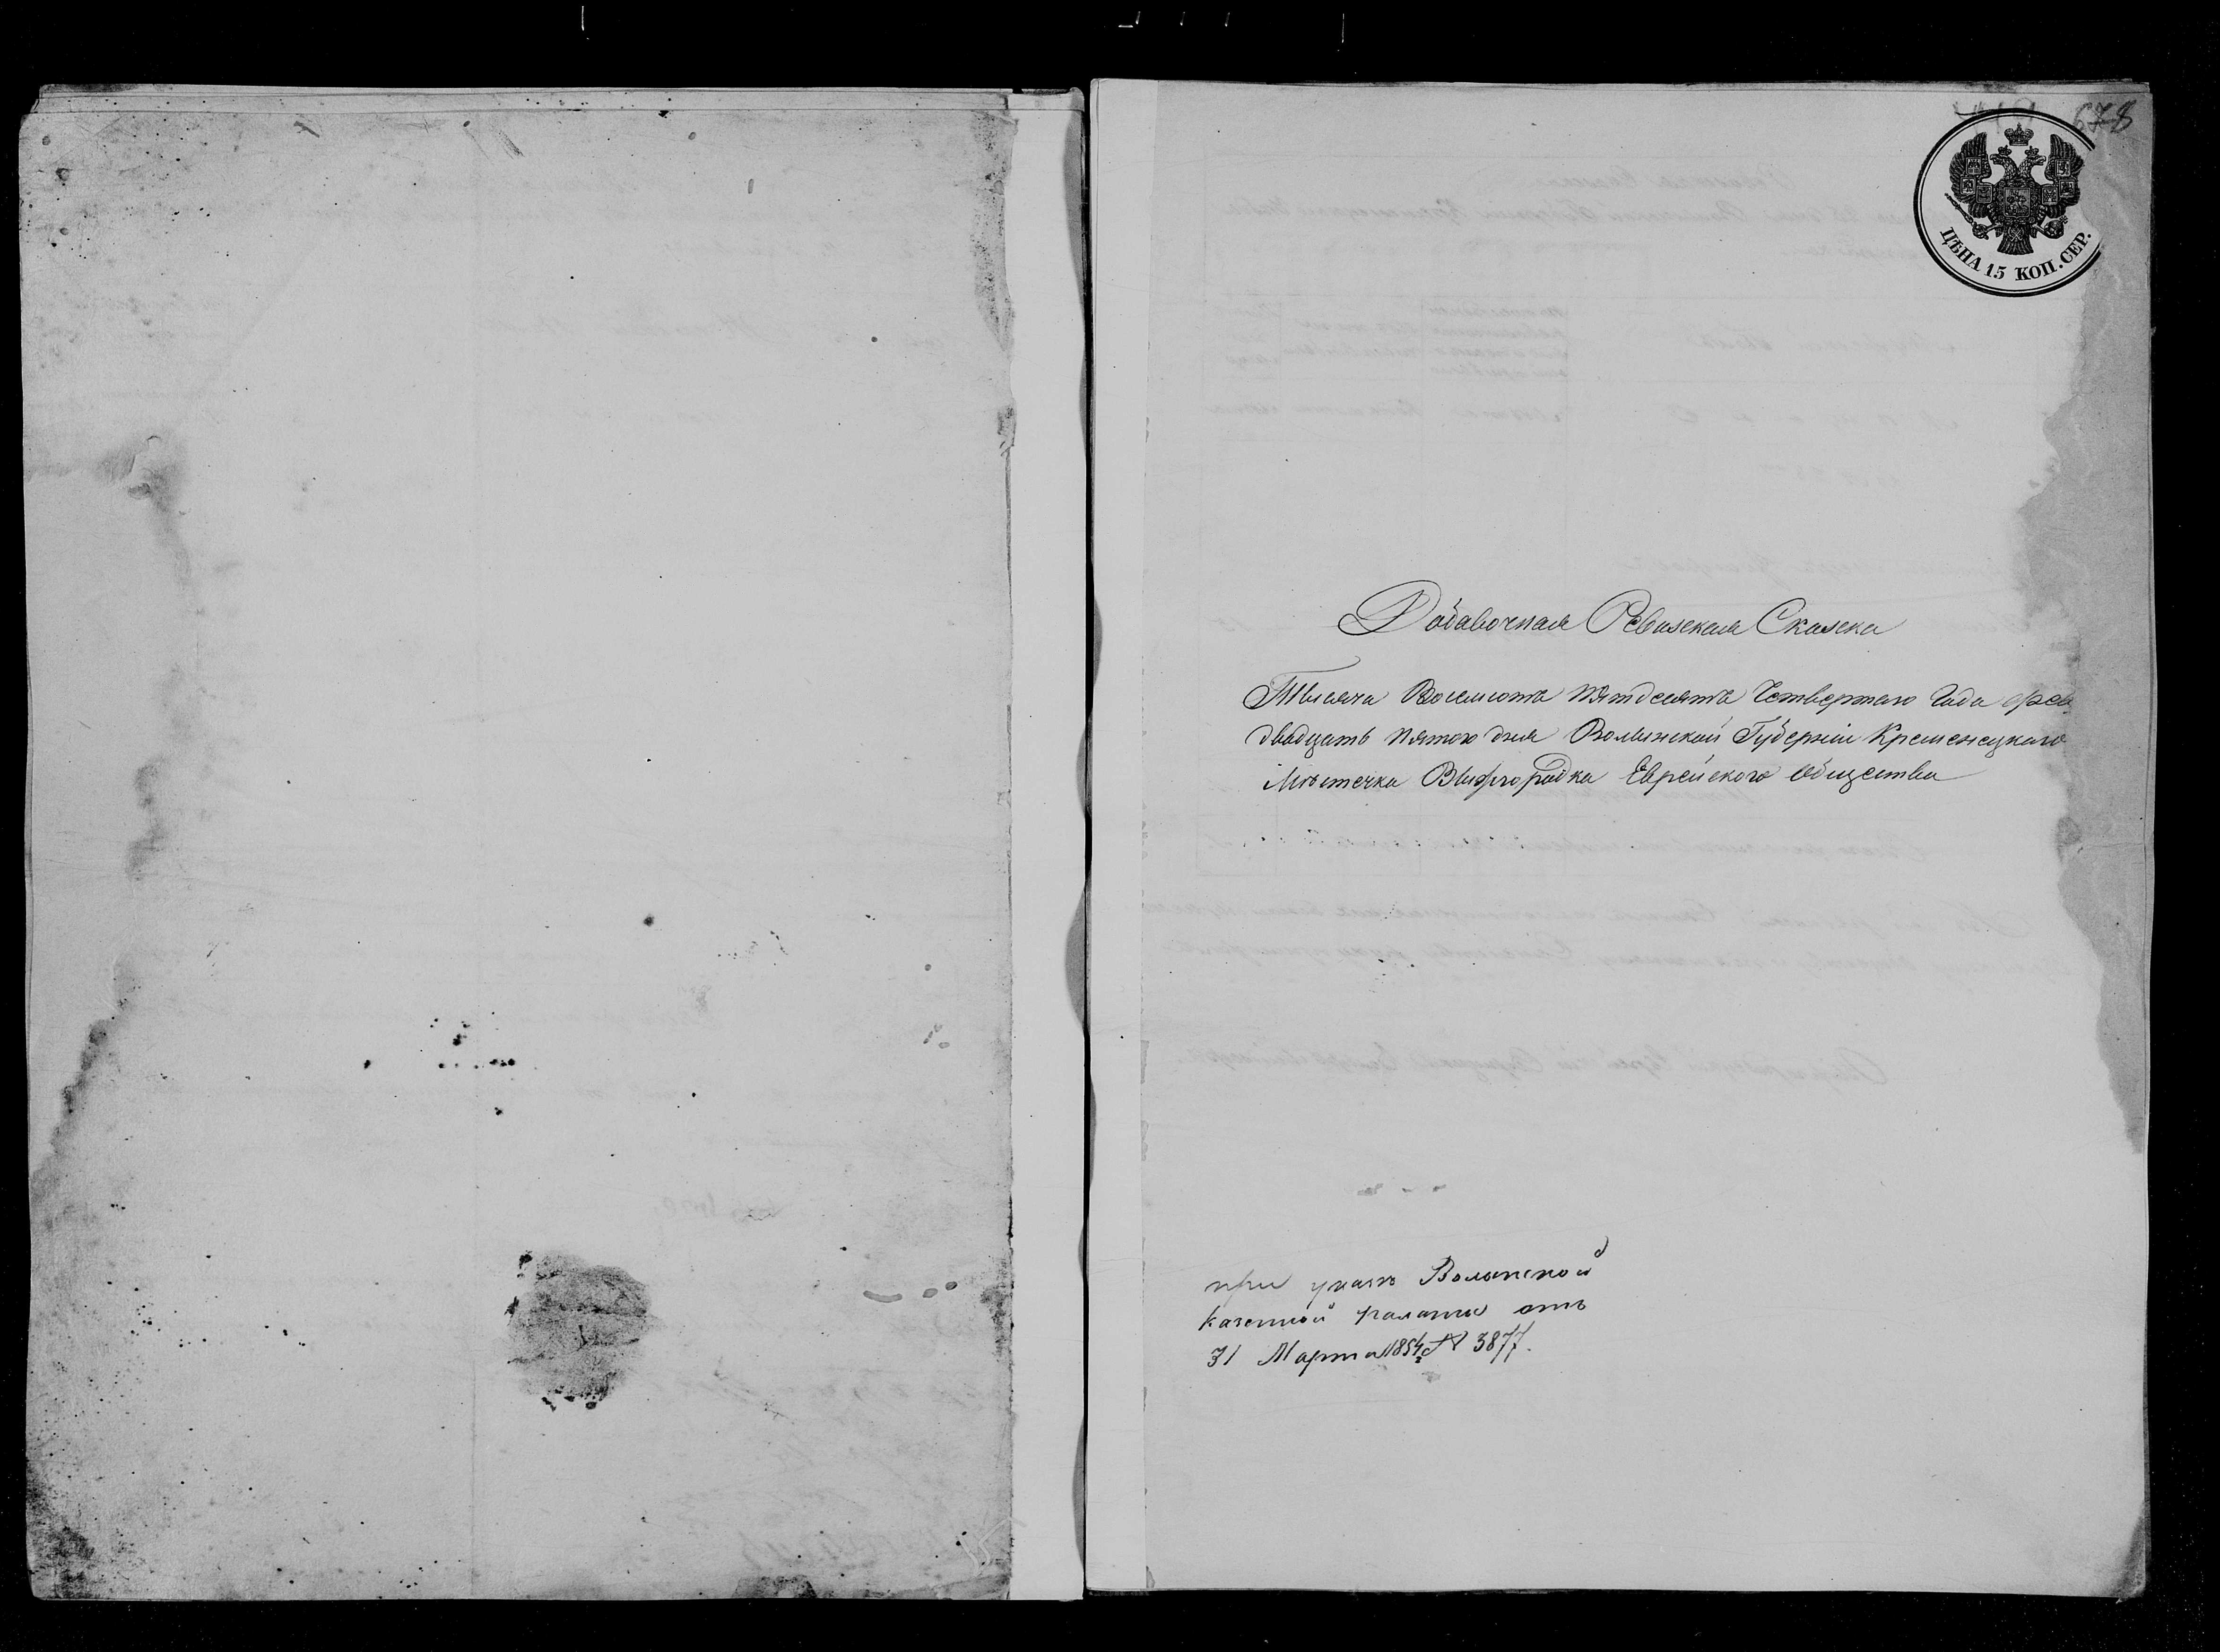 678
ЦѢНА 15 КОП. СЕР.
Добавочная Ревизская Сказка
Тысяча Восемьсотъ пятдесятъ Четвертаго Года
двадцать пятого дня Волынской Губерніи Кременецкаго
Мѣстечка Вышгородка Еврейского Общества
при указѣ Волынской
казенной палаты отъ
31 Марта 1854 № 3877.